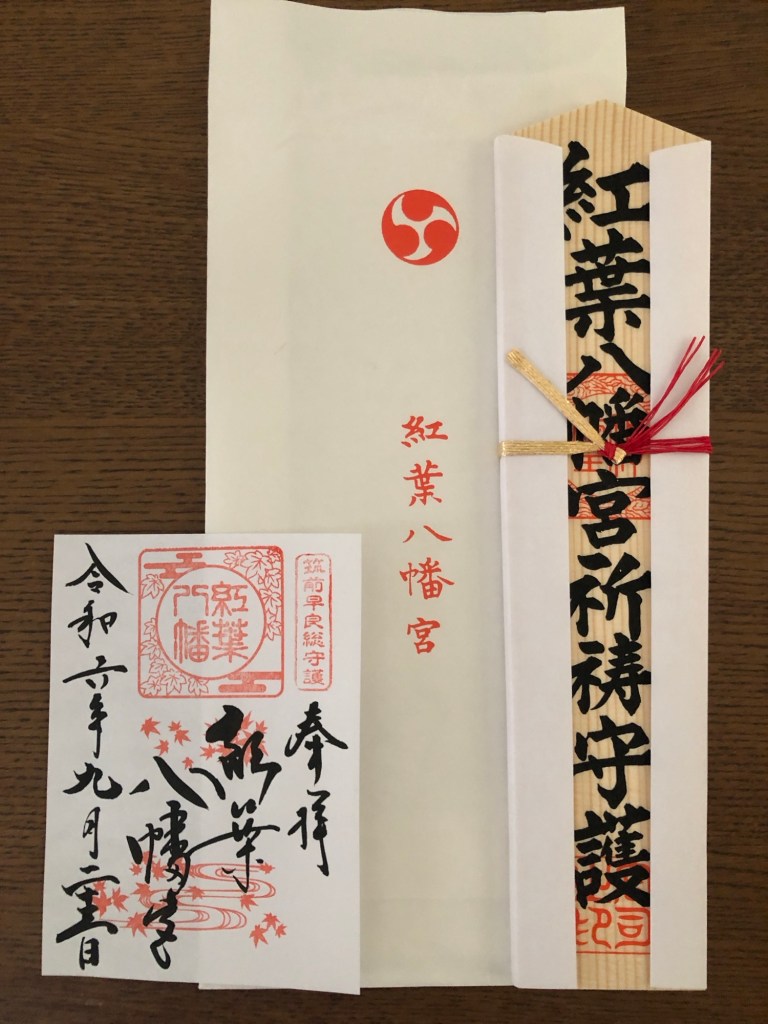 紅葉八幡宮祈祷守護
紅葉八幡宮
筑前早良総守護
紅葉
八幡
奉拝
紅葉
八幡宮
令和六年九月二十三日